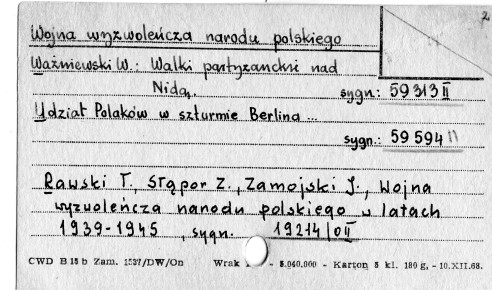 2
Wojna wyzwoleńcza narodu polskiego
Waźniewski W.: Walki partyzanckie nad
Nidą. sygn: 59313 II
Udział Polaków w szturmie Berlina ...
sygn.: 59 594 II
Rawski T., Stąpor Z., Zamojski J., Wojna
wyzwoleńcza narodu polskiego w latach
1939-1945, sygn. 19214/0II
CWD B 15 b Zam. 1537/DW/On Wrak - 5.000.000 - Karton 5 kl. 180 g, - 10.XII.68.